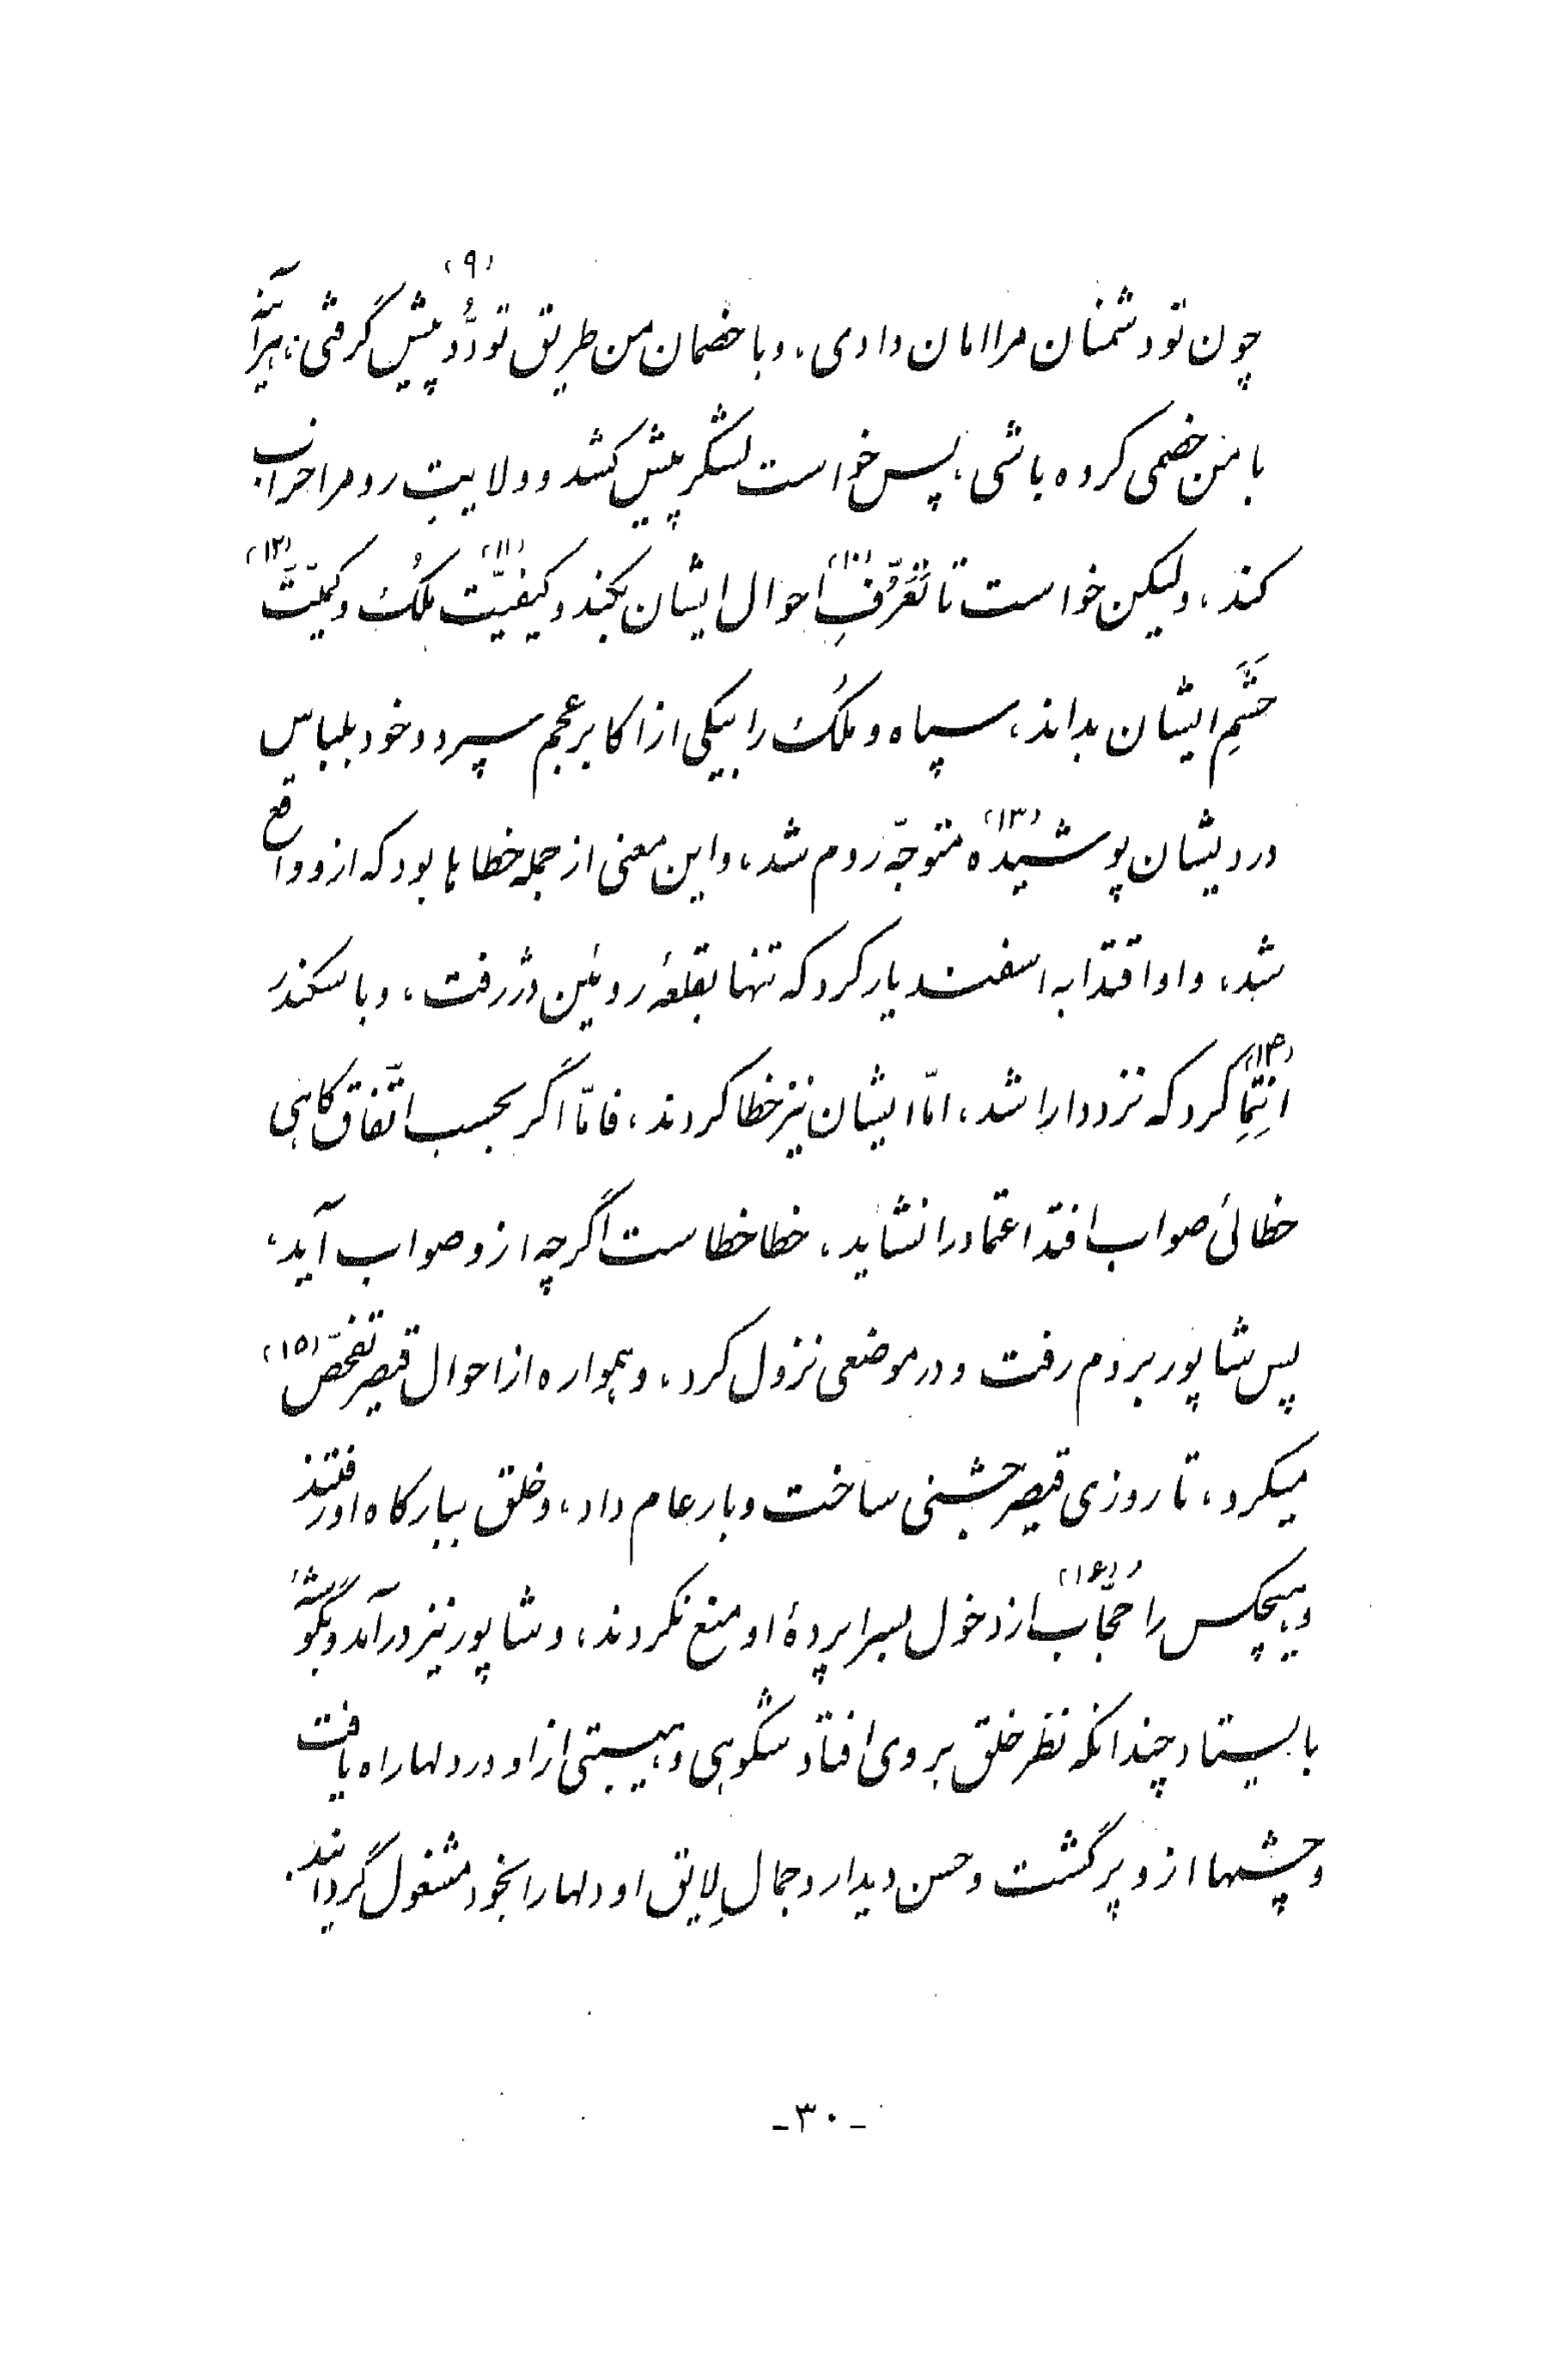 چون تو دشمنان مرا امان دادی، و با خصمان من طریق تودُّد(۹) پیش گرفتی، هرآینه
با من خصمی کرده باشی، پس خواست لشکر پیش کشد و ولایت روم را خراب
کند، ولیکن خواست تا تَعَرُّفِ(۱۰) احوال ایشان بکند و کیفیّت(۱۱) مُلک و کمیّت(۱۲)
حَشَمِ ایشان بداند، سپاه و مُلک را بیکی از اکابر عجم سپرد و خود بلباس
درویشان پوشیده(۱۳) متوجّه روم شد، و این معنی از جمله خطاها بود که ازو واقع
شد، و او اقتدا به اسفندیار کرد که تنها بقلعهٔ روئین دژ رفت، و باسکندر
اِئتِمام(۱۴) کرد که نزد دارا شد، امّا ایشان نیز خطا کردند، فامّا اگر بحسب اتّفاق گاهی
خطائی صواب افتد اعتماد را نشاید، خطا خطاست اگرچه ازو صواب آید،
پس شاپور بروم رفت و در موضعی نزول کرد، و همواره از احوال قیصر تفحّص(۱۵)
میکرد، تا روزی قیصر جشنی ساخت و بار عام داد، و خلق ببارگاه او رفتند
و هیچکس را حُجّاب(۱۶) از دخول بسراپردهٔ او منع نکردند، و شاپور نیز درآمد و بگوشهٔ
بایستاد چندانکه نظر خلق بروی افتاد شکوهی و هیبتی از او در دلها راه یافت
و چشمها ازو پر گشت و حسن دیدار و جمالِ لایق او دلها را بخود مشغول گردانید.
-۳۰-